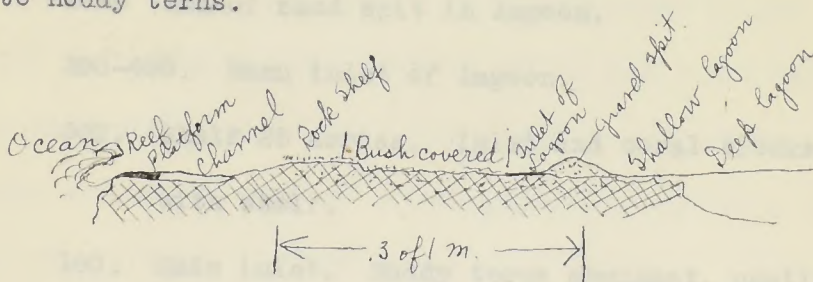 noddy terns.
Ocean
Reef
Platform
Channel
Rock Shelf
Bush covered
Inlet of
Lagoon
Shallow lagoon
Deep lagoon
.3 of 1 m.